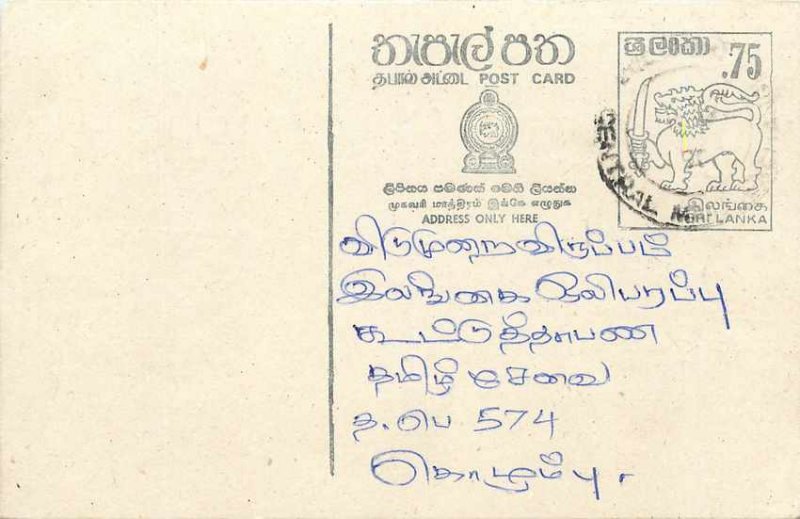 තැපැල් පත
தபால் அட்டை POST CARD
ලිපිනය පමණක් මෙහි ලියන්න
முகவரி மாத்திரம் இங்கே எழுதுக
ADDRESS ONLY HERE
ශ්‍රී ලංකා
.75
இலங்கை
SRI LANKA
CENTRAL M
விடுமுறை விருப்பம்
இலங்கை ஒலிபரப்பு
கூட்டுத்தாபண
தமிழ் சேவை
த. பெ 574
கொழும்பு.